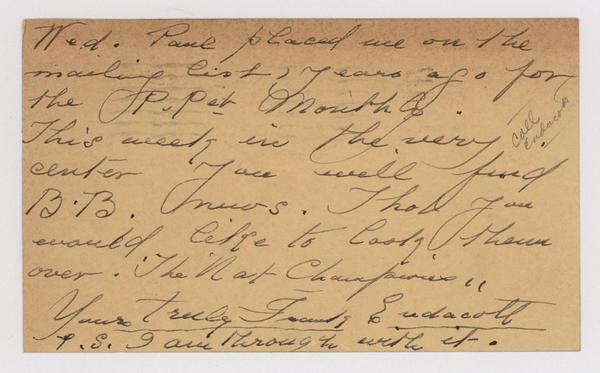 Wed. Paul placed me on the
mailing list, years ago for
the Monthly.
This week in the very
center you will find
B.B. news. Thou you
would like to look them
over. "The Nat Champions"
Yours truly Frank Endacott
P.S. I am through with it.
Call
Endacott